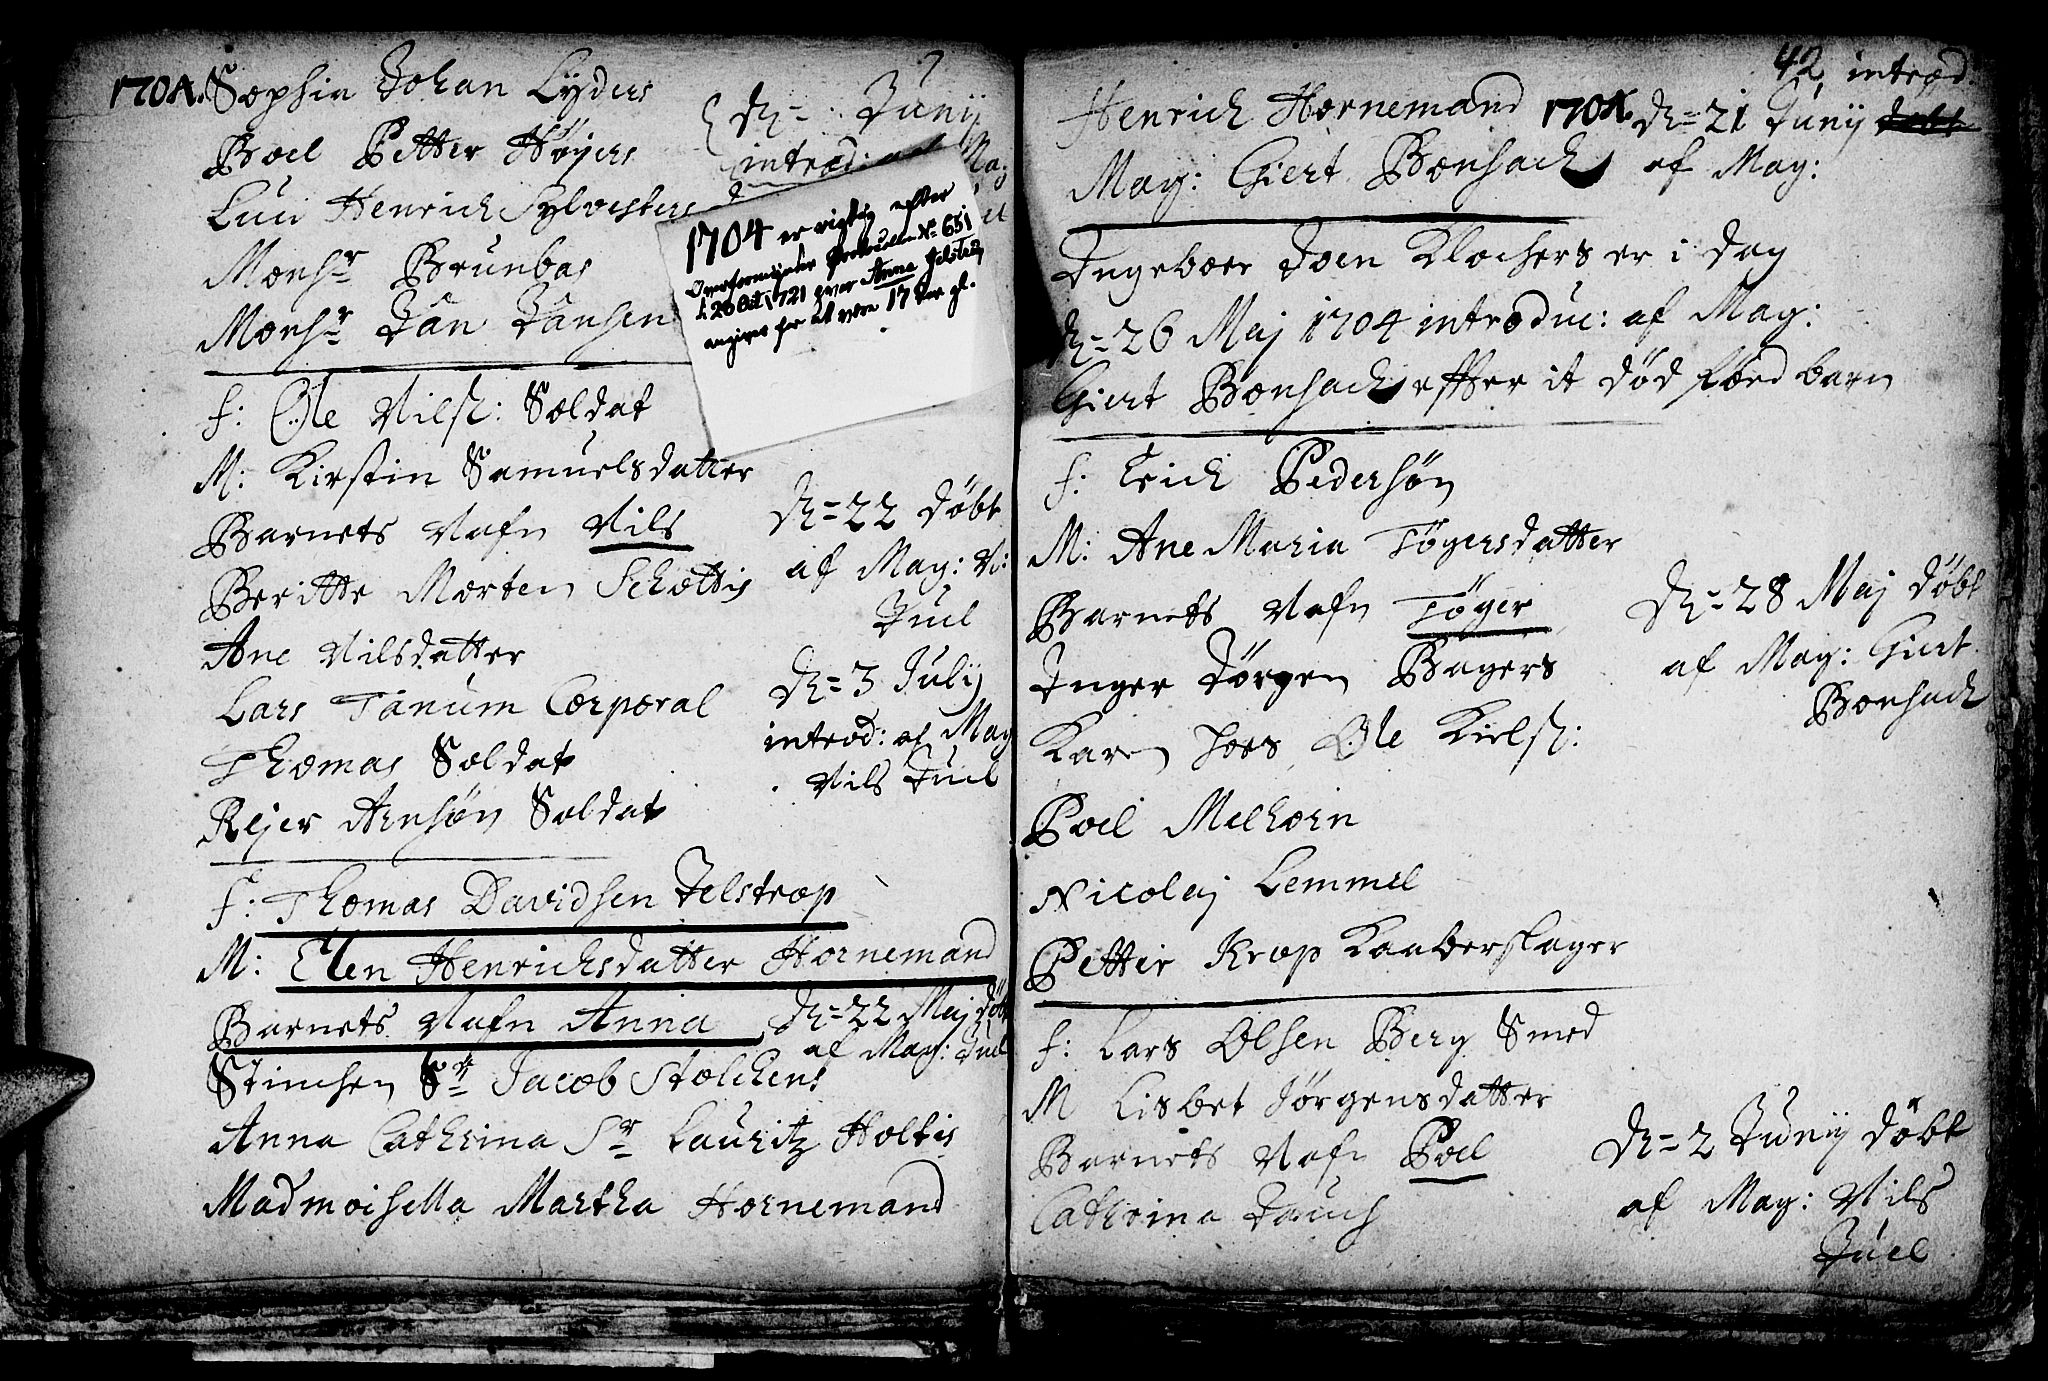 1704. Sophia Johan Lyders
Boel Petter Høyers
Luci Henrich Sylvesters
Monsr Brunbas
Monsr Jan Jansen
Dn= Junij
introd: af Mag
1704 er rigtig efter
Overformynder Protocollen No 651
20 Oct 1721 hvor Anna Jelstrup
angives for at være 17 Aar gl.
f: Ole Nilss: Soldat
M: Kirstin Samuelsdatter
Barnets Nafn Nils
Beritte Morten Schottis
Ane Nilsdatter
Lars Tanum Corporal
Thomas Soldat
Rejer Arnsøn Soldat
Dn=22 døbt
af Mag: N:
Juel
Dn=3 Julij
introd: af Mag
Nils Juel
f: Thomas Davidsen Jelstrop
M: Elen Henrichsdatter Hornemand
Barnets Nafn Anna
Dn=22 Maj døbt
af Mag: Juel
Stinchen Sr Jacob Stolchens
Anna Cathrina Sr Lauritz Holtis
Madmoisella Martha Hornemand
42
Henrich Hornemand 1704. Dn=21 Junij introd.
Mag: Giert Bonsach af Mag:
Ingeboer Joen Klochers er i dag
Dn=26 Maj 1704 introduc: af Mag:
Giert Bonsach effter it død fød barn
f: Erich Pedersøn
M: Ane Maria Tøgersdatter
Barnets Nafn Tøger
Inger Jørgen Bagers
Karen Ole Kielss:
Poel Melhorn
Nicolaj Lemmel
Petter Krop Kaaberslager
Dn=28 Maj døbt
af Mag: Giert
Bonsach
f: Lars Olsen Berg Smed
M Lisbet Jørgensdatter
Barnets Nafn Poel
Cathrina Jauch
Dn=2 Junij døbt
af Mag: Nils
Juel